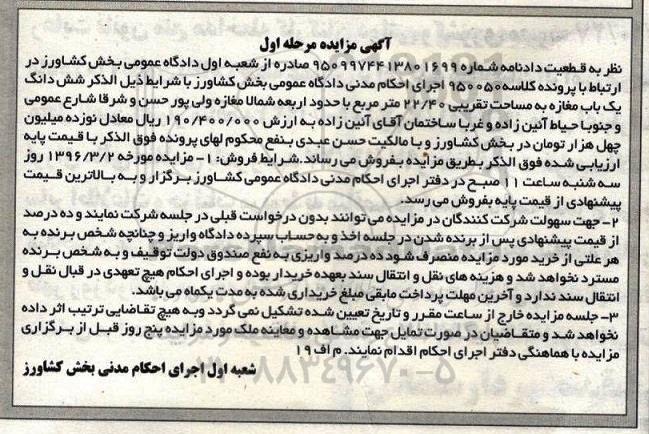 آگهی مزایده مرحله اول
نظر به قطعیت دادنامه شماره ۹۵۰۹۹۷۴۴۱۳۸۰۱۶۹۹ صادره از شعبه اول دادگاه عمومی بخش کشاورز در
ارتباط با پرونده کلاسه ۹۵۰۰۵۰ اجرای احکام مدنی دادگاه عمومی بخش کشاورز با شرایط ذیل الذکر شش دانگ
یک باب مغازه به مساحت تقریبی ۲۲/۴۰ متر مربع با حدود اربعه شمالا مغازه ولی پور حسن و شرقا شارع عمومی
و جنوبا حیاط آئین زاده و غربا ساختمان آقای آئین زاده به ارزش ۱۹۰/۴۰۰/۰۰۰ ریال معادل نوزده میلیون و
چهل هزار تومان در بخش کشاورز و با مالکیت حسن عبدی بنفع محکوم لهای پرونده فوق الذکر با قیمت پایه
ارزیابی شده فوق الذکر بطریق مزایده بفروش می رساند. شرایط فروش: ۱- مزایده مورخه ۱۳۹۶/۳/۲ روز
سه شنبه ساعت ۱۱ صبح در دفتر اجرای احکام مدنی دادگاه عمومی کشاورز برگزار و به بالاترین قیمت
پیشنهادی از قیمت پایه بفروش می رسد.
۲- جهت سهولت شرکت کنندگان در مزایده می توانند بدون درخواست قبلی در جلسه شرکت نمایند و ده درصد
از قیمت پیشنهادی پس از برنده شدن در جلسه اخذ و به حساب سپرده دادگاه واریز و چنانچه شخص برنده به
هر علتی از خرید مورد مزایده منصرف شود ده درصد واریزی به نفع صندوق دولت توقیف و به شخص برنده
مسترد نخواهد شد و هزینه های نقل و انتقال سند بعهده خریدار بوده و اجرای احکام هیچ تعهدی در قبال نقل و
انتقال سند ندارد و آخرین مهلت پرداخت مابقی مبلغ خریداری شده به مدت یکماه می باشد.
۳- جلسه مزایده خارج از ساعت مقرر و تاریخ تعیین شده تشکیل نمی گردد وبه هیچ تقاضایی ترتیب اثر داده
نخواهد شد و متقاضیان در صورت تمایل جهت مشاهده و معاینه ملک مورد مزایده پنج روز قبل از برگزاری
مزایده با هماهنگی دفتر اجرای احکام اقدام نمایند. م اف ۱۹
شعبه اول اجرای احکام مدنی بخش کشاورز